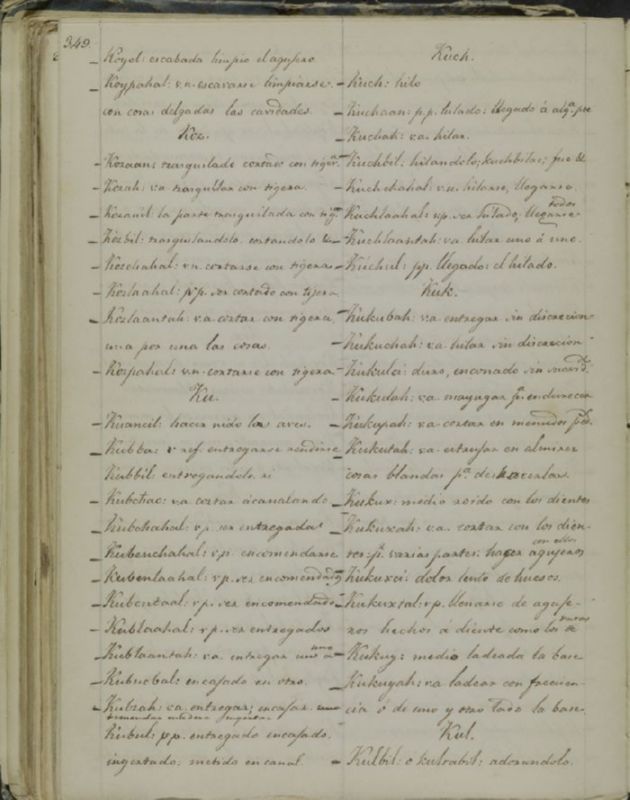 349.
Koyol: escabada limpio el agujero
Koypahal: v.n. escavarse limpiarse
con cosas delgadas las cavidades.
Koz.
Kozaan: trasquilado cortado con tiger.
Kozah: va trasquilar con tigera.
Kozanil la parte trasquilada con tig.
Kozbil: trasquilandolo, cortandolo &
Kozchahal: v.n. cortarse con tigeras
Kozlaahal: v.p. ser cortado con tijera
Kozlaantah: v.a cortar con tigera
una por una las cosas.
Kozpahal: v.n. cortarse con tigera
Ku.
Kuancil: hacer nido las aves.
Kubba: v ref. entregarse rendirse
Kubbil: entregandolo.
Kubchac: va cortar acanalando
Kubchahal: v.p. ser entregadas
Kubenchahal: v.p. encomendarse
Kubentaahal: v.p. ser encomendado
Kubentaal: v.p. ser encomendado
Kublaahal: v.p. ser entregados
Kublaantah: v.a. entregar uno a uno
Kubucbal: encajado en otro.
Kubzah: v.a. entregar; encajar
Kubul: p.p. entregado encajado.
ingertado: metido en canal.
Kuch.
Kuch: hilo
Kuchaan: p.p. hilado: llegado á alg.
Kuchah: v.a. hilar.
Kuchbil: hilandolo; kuchbilac; fue &
Kuchchahal: v.n. hilarse, llegarse.
Kuchlaahal: v.p. ser hilado, llegarse todos
Kuchlaantah: v.a. hilar uno á uno.
Kuchul: p.p. llegado: el hilado.
Kuk.
Kukubah: v.a entregar sin discrecion
Kukuchah: v.a hilar sin discrecion
Kukulci: duro, enconado sin
Kukutah: v.a. mayugar endurecer
Kukupah: v.a cortar en menudos
Kukutah: v.a. estrujar en almirez
cosas blandas p.a deshacerlas.
Kukux: medio roido con los dientes
Kukuxah: v.a. cortar con los dien-
tes p.r varias partes: hacer con ellos agujeros
Kukuxci: dolor lento de huesos.
Kukuxtal: v.p. llenarse de aguje-
ros hechos á diente como los ratones &
Kukuy: medio ladeada la base
Kukuyah: v.a ladear con frecuen-
cia ó de uno y otro lado la base.
Kul.
Kulbil: o kultabil: adorandolo.